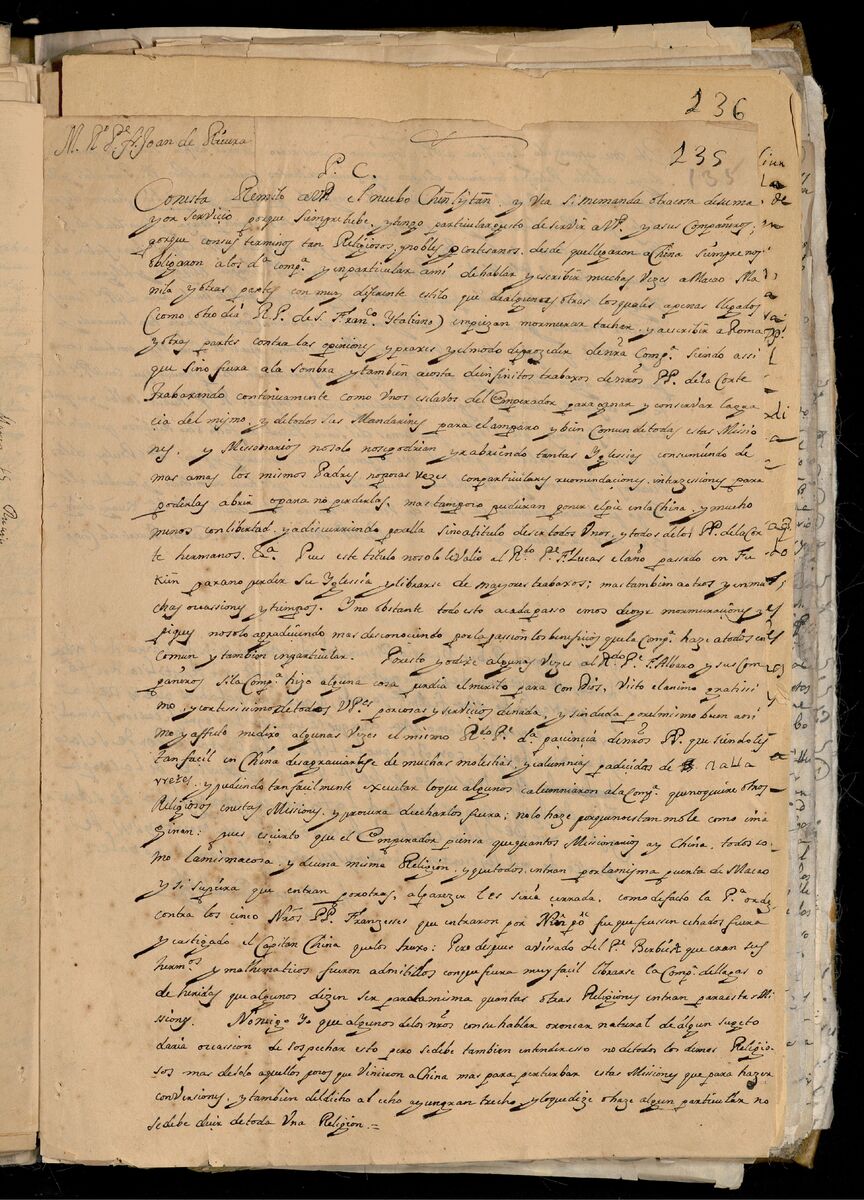 236
235
135
M. Rº Pe. fr. Joan de Riuera
P. C.
Con esta Remito a VR el nuebo Chùn lÿ tâñ, y vea si me manda otra cosa de su ma
yor servicio porque siempre tube, y tengo particular gusto de servir a VR. y a sus Compañeros,
porque con sus terminos tan Religiosos, y nobles, y cortesanos, desde que llegaron a China siempre nos
obligaron a los d la compª y en particular a mi de hablar y escribir muchas Vezes a Macao Ma
nila y otras partes con muy diferente estilo que de algunos otros los quales apenas llegados
(como otro dia R. P. de S. Francº Ytaliano) empiezan mormurar tachar, y a escribir a Roma
y otras partes contra las opiniones y praxes y el modo de prozeder de nrã Compª siendo assi
que sino fuera a la sombra y tambien a costa de infinitos trabaxos de nrõs PP. de la Corte
Trabaxando continuamente como Unos esclavos del Emperador para ganar y conservar la gra
cia del mismo, y de todos sus Mandarines para el amparo, y bien Comun de todas estas Missio
nes, y Missionarios no solo nos podrian yr abriendo tantas Yglessias consumiendo de
mas amas los mismos Padres no pocas vezes con particulares recomendaciones, interzessiones para
poderlas abrir o para no perderlas, mas tampoco pudieran poner el pie en la China, y mucho
menos con libertad, y a discurriendo por ella sino a titulo de ser todos Unos, y todos de los PP. de la Cor
te hermanos. &ª Pues este titulo no solo le Valio al Rdo Pe Fr. Lucas el año passado en Fu
kien para no perder su Yglessia y librarse de mayores trabaxos; mas tambien a otros y en mu
chas ocassiones y tiempos. Y no obstante todo esto a cada passo emos de oyr mormuraciones y
piques no solo agradeciendo mas desconociendo por la passion los beneficios que la Compª haze a todos en
comun y tambien in particular. Por esto yo dixe algunas Vezes al Rdo Pe f. Albaro y sus Com
pañeros si la Compª hizo alguna cosa perdia el merito para con Dios, Visto el animo gratissi
mo, y cortessissimo de todos VPes por cosas y servicios de nada, y sin duda por el mismo buen ani
mo y affecto me dixo algunas Vezes el mismo Rdo Pe dla paciencia de nrõs PP. que siendoles
tan facil en China desagraviarse de muchas molestias, y calumnias padecidas de Nava
rretes, y pudiendo tan facilmente executar lo que algunos calumniaron a la Compª que no quiere otros
Religiosos en estas Missiones y procura de echarlos fuera; no lo haze porque no es tan mole como ima
ginan: pues es cierto que el Emperador piensa que quantos Missionarios ay China, todos so
mos la misma cosa, y de una misma Religion, y que todos entran por la misma puerta de Macao
y si supiera que entran por otras, al parezer les seria cerrada, como de facto la Pª orden
contra los cinco Nrõs PP. Franzesses que entraron por Nin pó fue que fuessen echados fuera
y castigado el Capitan China que los truxo: Pero despues avisado del Pe Berbiest que eran sus
hermos y mathematicos fueron admitidos con que fuera muy facil librarse la Compª de llagas o
de heridas que algunos dizen ser para la misma quantas otras Religiones entran para estas Mi
ssiones. No niego Yo que algunos de los nrõs con su hablar o roncar natural de algun sugeto
daria occassion de sospechar esto pero se debe tambien entender esso no de todos los demas Religio
sos mas de solo aquellos pocos que Vinieron a China mas para perturbar estas Missiones que para hazer
conversiones, y tambien del dicho al echo ay un gran trecho, y lo que dize o haze algun particular no
se debe dezir de toda Una Religion. =